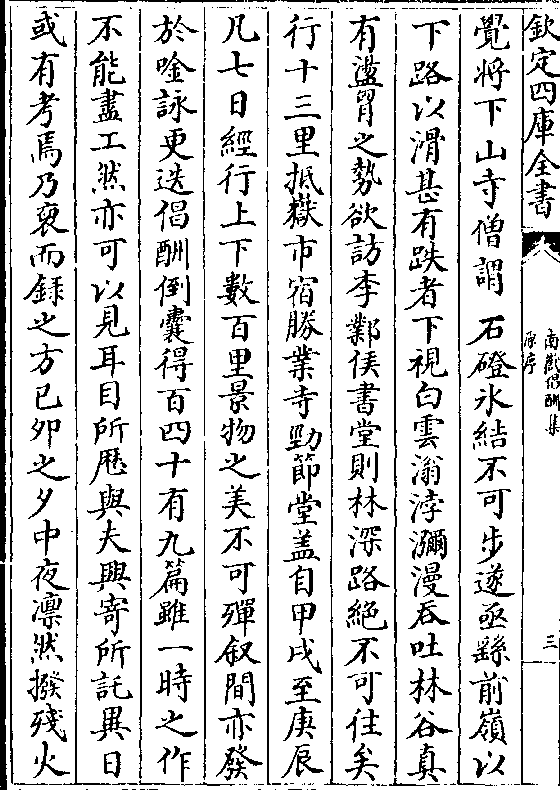 欽定四庫全書
南嶽倡酬集
原序
三
覺將下山寺僧謂 石磴氷結不可步遂亟繇前嶺以
下路以滑甚有跌者下視白雲滃浡瀰漫吞吐林谷真
有盪胷之勢欲訪李鄴侯書堂則林深路絶不可往矣
行十三里抵嶽市宿勝業寺勁節堂盖自甲戌至庚辰
凡七日經行上下數百里景物之美不可殫叙間亦發
於唫詠更迭倡酬倒囊得百四十有九篇雖一時之作
不能盡工然亦可以見耳目所歴與夫興寄所託異日
或有考焉乃裒而録之方己夘之夕中夜凛然撥殘火